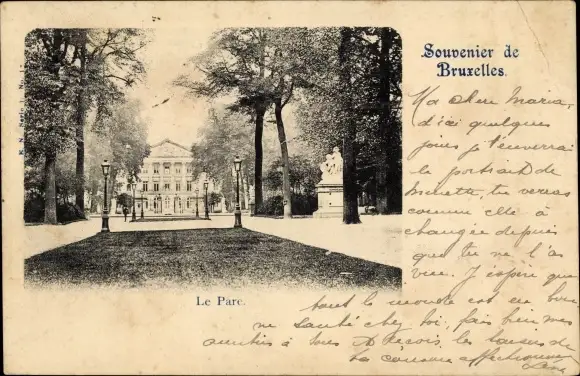 Souvenir de
Bruxelles.
Ma chère Maria,
d'ici quelques
jours je t'enverrai
le portrait de
tu verras
comme elle à
changée depuis
que tu ne l'as
vue. J'espère que
tout le monde est en bon
ne santé chez toi, fais bien mes
amitiés à tous et reçois les baisers de
ta cousine affectionnée
Le Parc.